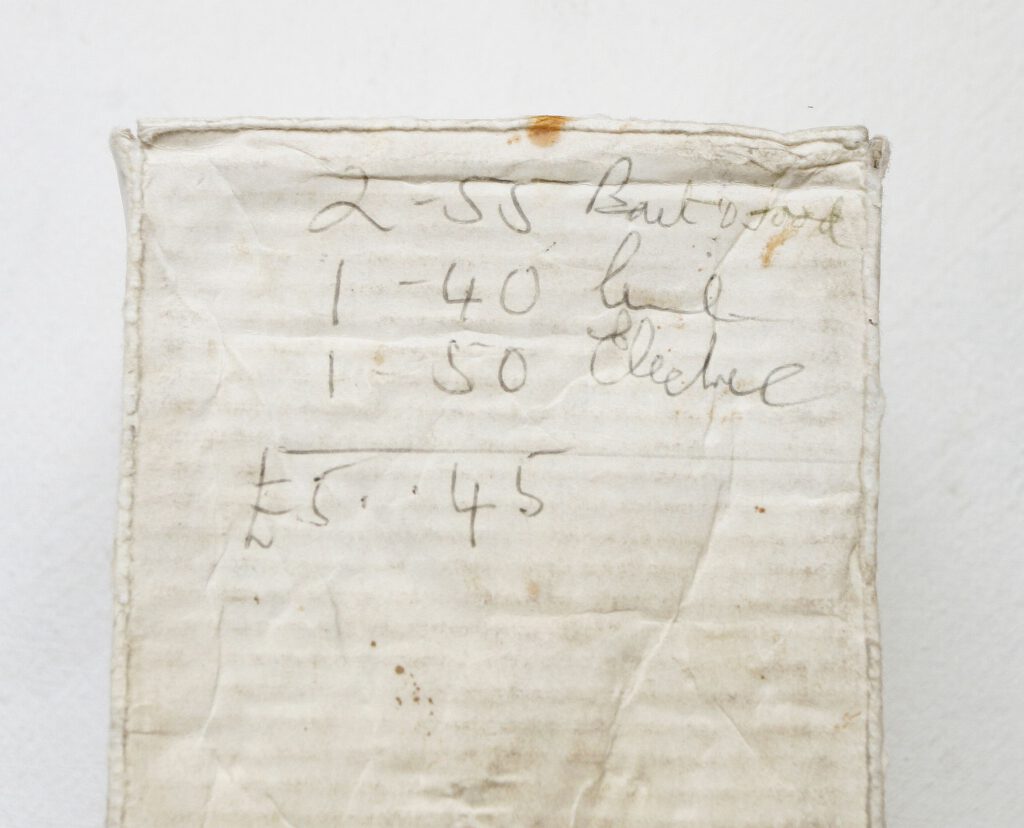 2 - 55 food
1 - 40
1 - 50 Electric
£5 . . 45